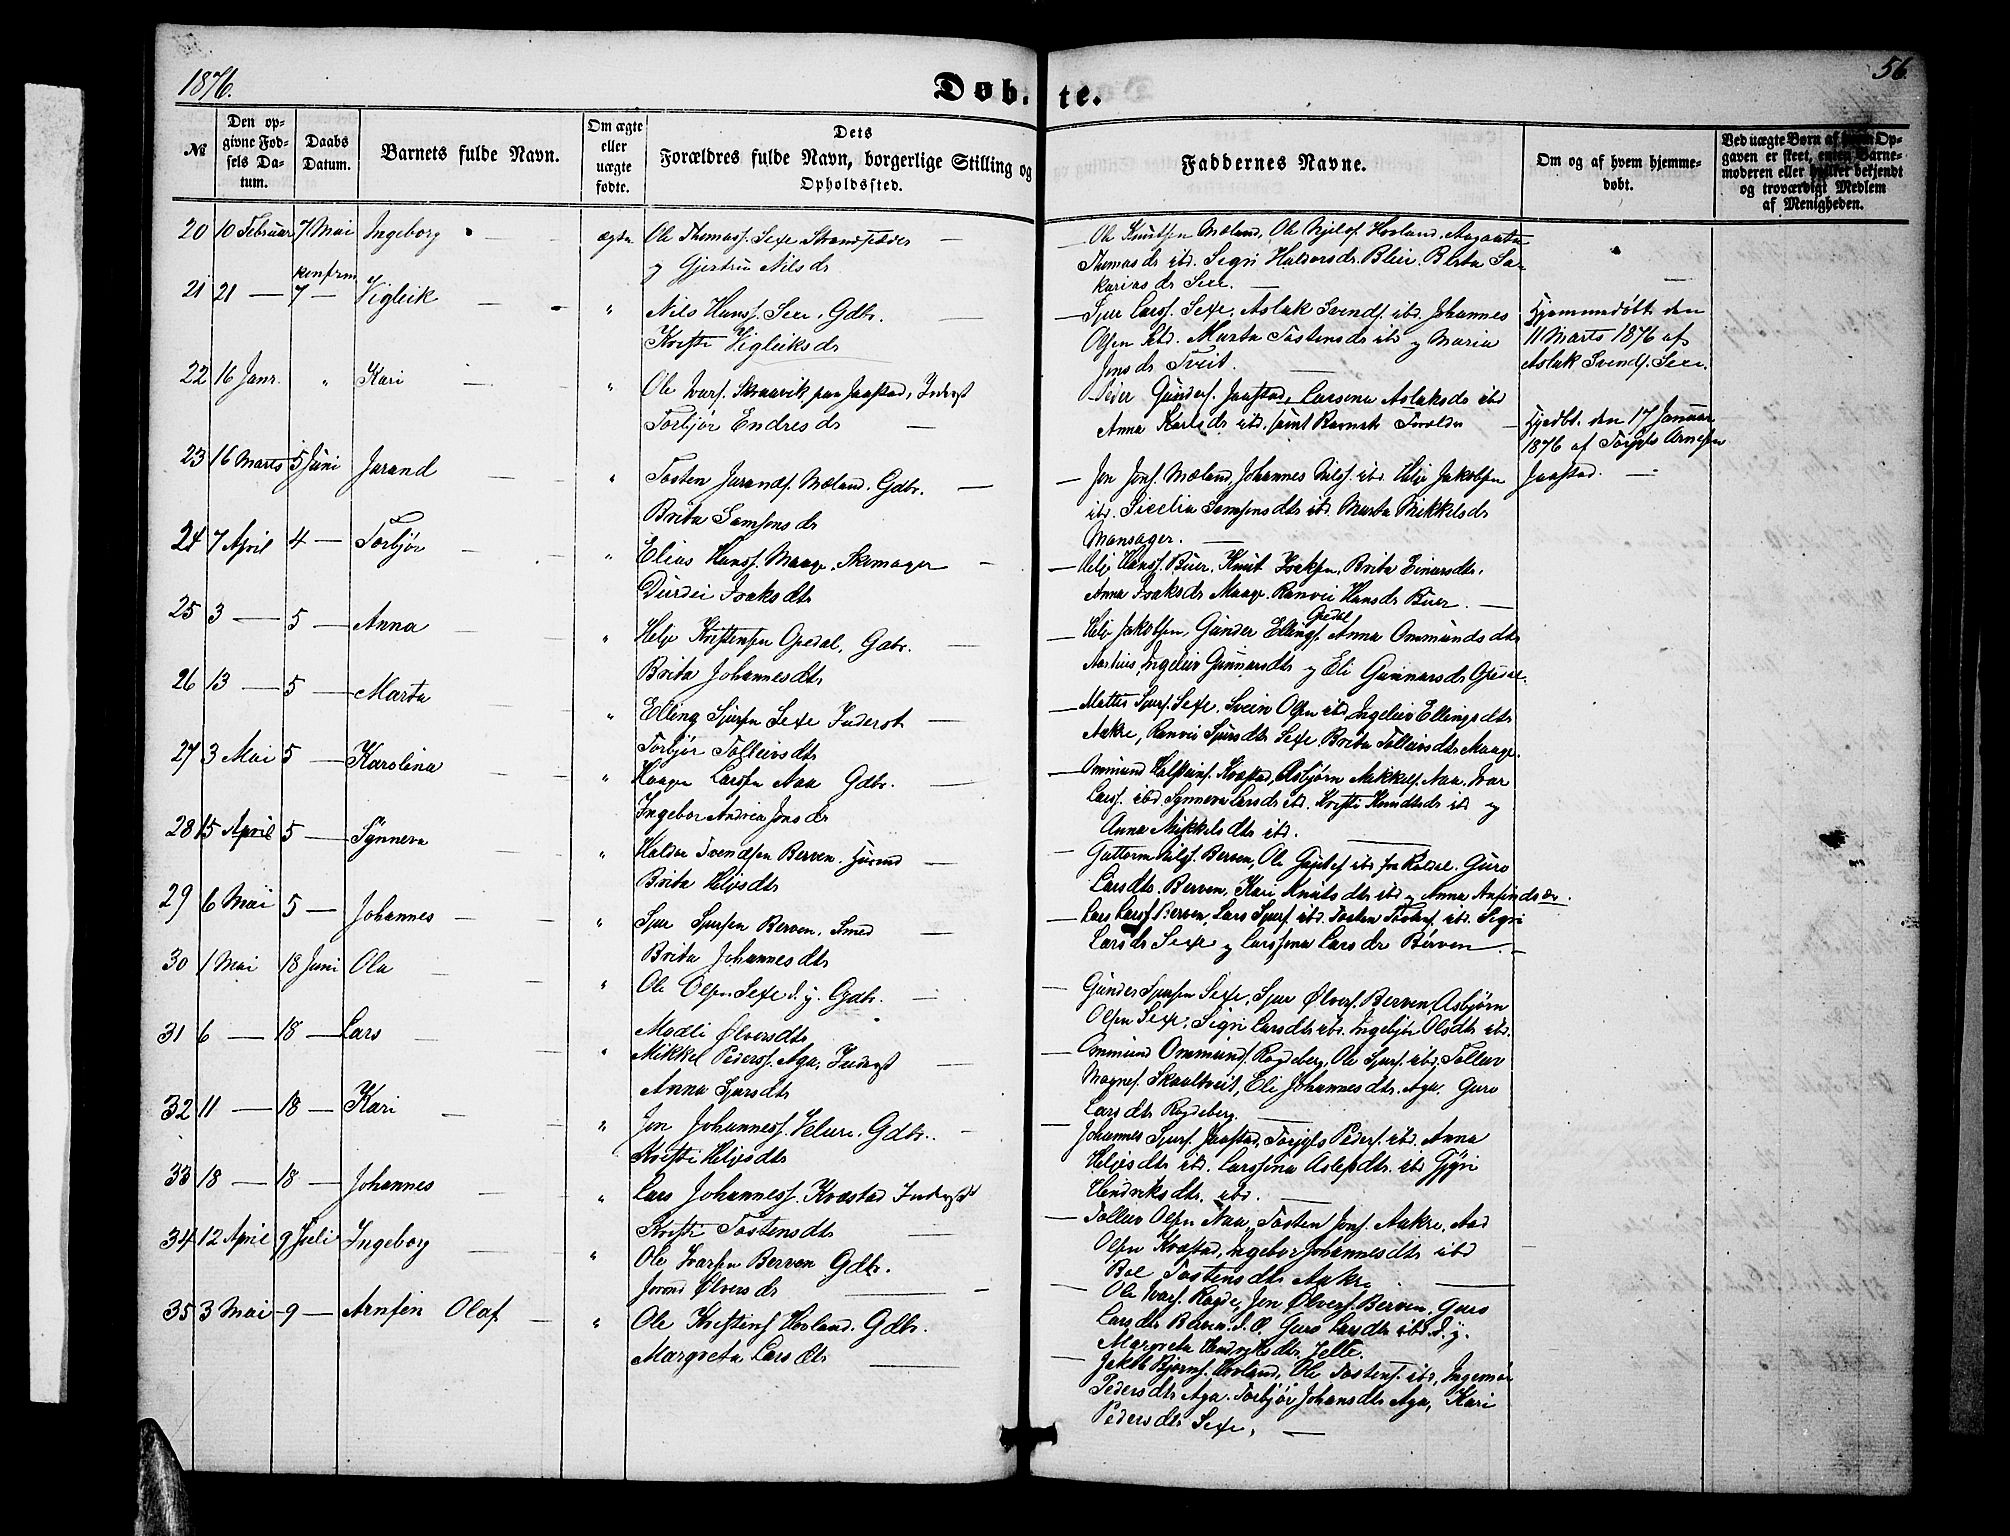 1876.
Døb-te.
56
№
Den op-
givne Fød-
sels Da-
tum.
Daabs
Datum.
Barnets fulde Navn.
Om ægte
eller
uægte
fødte.
Dets
Forældres fulde Navn, borgerlige Stilling og
Opholdssted.
Faddernes Navne.
Om og af hvem hjemme-
døbt.
Ved uægte Børn af hvem Op-
gaven er skeet, enten Barne-
moderen eller hvilket bekjendt
og troværdigt Medlem
af Menigheden.
20 10 Februar 7 Mai Ingeborg ægte Ole Thomass. Sexe Strandsidder
og Gjertrud Nilsdr
Ole Knutsen Mæland, Ole Hovland, Aagaata
Thomasdr ibd. Sigri Haldorsdr. Bleie. Brita Sa-
kariasdr Sexe.
21 21 — 7 — konfirm Vigleik " Nils Hanss. Sexe. Gdbr.
Kristi Vigleiksdr
Sjur Larss. Sexe, Aslak Svends. ibd. Johannes
Olsen ibd. Marta Tostensdr ibd og Maria
Jonsdr Tveit.
Hjemmedøbt den
11 Marts 1876 af
Aslak Svends. Sexe.
22 16 Janr. " Kari " Ole Ivars. Skaarvik paa Jaastad, Inderst
Torbjør Endresdr
Peder Gunders. Jaastad, Larsena Aslaksdr ibd
Anna Karlsdr ibd. samt Barnets Forældre
Hjedbt. den 17 Januar
1876 af Torgils Arnesen
Jaastad.
23 16 Marts 5 Juni Jurand " Tosten Jurands. Mæland. Gdbr.
Brita Samsonsdr
Jon Jons. Mæland, Johannes Nils. ibd. Helje Jakobsen
ibd. Sicelia Samsonsdtr ibd. Marta Mikkelsdr
Mansager.
24 7 April 4 — Torbjør " Elias Hanss. Maage. Skomager
Durdei Isaksdtr
Helje Hanss. Buer. Knut Isaksen, Brita Einarsdtr.
Anna Isaksdr Maage. Ranvei Hansdr Buer.
25 3 — 5 — Anna " Helje Kristensen Opedal, Gdbr.
Brita Johannesdtr
Helje Jakobsen, Gunder Ellings. Opedal Anna Ommundsdtr
Ingeleiv Gunnarsdtr og Eli Gunnarsdr Opedal.
26 13 — 5 — Marta " Elling Sjursen Sexe Inderst
Torbjør Tolleivsdtr
Mattis Sjurs. Sexe. Svein Olsen ibd, Ingeleiv Ellingsdtr
Aakre, Ranvei Sjursdtr Sexe Brita Tolleivsdtr Maage.
27 3 Mai 5 — Karolina " Haage Larssen Aaa Gdbr.
Ingebor Andrea Jonsdr
Ommund Kvæstad, Asbjørn Mikkels. Aaa. Ivar
Larss. ibd. Synneva Larsdr ibd. Kristi Knudsdr ibd og
Anna Mikkelsdtr ibd.
28 15 April 5 — Synneva " Haldor Svendsen Berven. Husmd
Brita Heljesdtr
Guttorm Nils. Berven, Ole ibd fra Koldal. Guro
Larsdtr. Berven, Kari Knutsdtr ibd og Anna Anfindsdr.
29 6 Mai 5 — Johannes " Sjur Sjursen Berven. Smed
Brita Johannesdtr
Lars Larss. Berven, Lars Sjurs. ibd. Tosten Tostens. ibd. Sigri
Larsdr Sexe og Larssena Larsdr Berven
30 1 Mai 18 Juni Ola " Ole Olsen Sexe d. y. Gdbr.
Madli Ølversdtr
Gunder Sjursen Sexe, Sjur Ølvers. Berven, Asbjørn
Olsen Sexe, Sigri Larsdtr ibd. Ingebjør Olsdtr ibd.
31 6 — 18 — Lars " Mikkel Peders. Aga, Inderst
Anna Sjursdtr
Ommund Ommunds. Ragdeberg, Ole Sjurs. ibd. Tolleiv
Magnes. Skaaltveit, Eli Johannesdtr Aga. Guro
Larsdtr Ragdeberg.
32 11 — 18 — Kari " Jon Johanness. Velure. Gdbr.
Kristi Heljesdtr
Johannes Sjurs. Jaastad, Torgils Peders. ibd. Anna
Heljesdtr ibd. Larssina Aslaksdtr. ibd Sigri
Hendriksdtr. ibd.
33 18 — 18 — Johannes " Lars Johanness. Kvæstad Inderst
Kristi Tostensdtr
Tolleiv Olsen Aaa, Tosten Jons. Aakre, Aad
Olsen Kvæstad, Ingebor Johannesdtr ibd
Boe Tostensdtr Aakre
34 12 April 9 Juli Ingeborg " Ole Ivarsen Berven Gdbr.
Jorond Ølversdr
Ole Ivars. Ragde, Jon Ølvers. Berven. Guro
Larsdtr Berven d. Æ. Guro Larsdtr ibd d. y.
Margreta Hendriksdtr, Jelle.
35 3 Mai 9 — Arnfin Olaf " Ole Kristens. Hovland. Gdbr.
Margreta Larsdtr
Jakob Bjørns. Hovland, Ole Tostens. ibd, Ingemor
Pedersdtr Aga. Torbjør Johansdtr Aga, Kari
Pedersdtr Sexe.